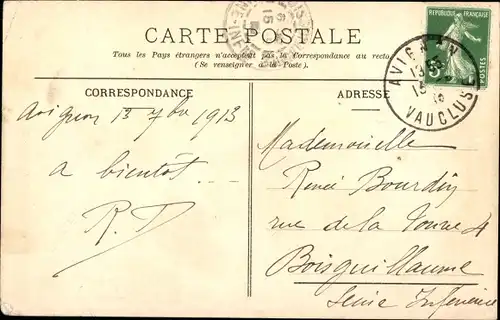 CARTE POSTALE
Tous les Pays étrangers n'acceptent pas la Correspondance au recto
(Se renseigner à la Poste).
RÉPUBLIQUE FRANÇAISE
POSTES
AVIGNON
VAUCLUSE
CORRESPONDANCE
ADRESSE
Avignon 13 7bre 1913
a bientôt
R. D
Mademoiselle
Renée Bourdin
rue de la 4
Boisguillaume
Seine Inférieure